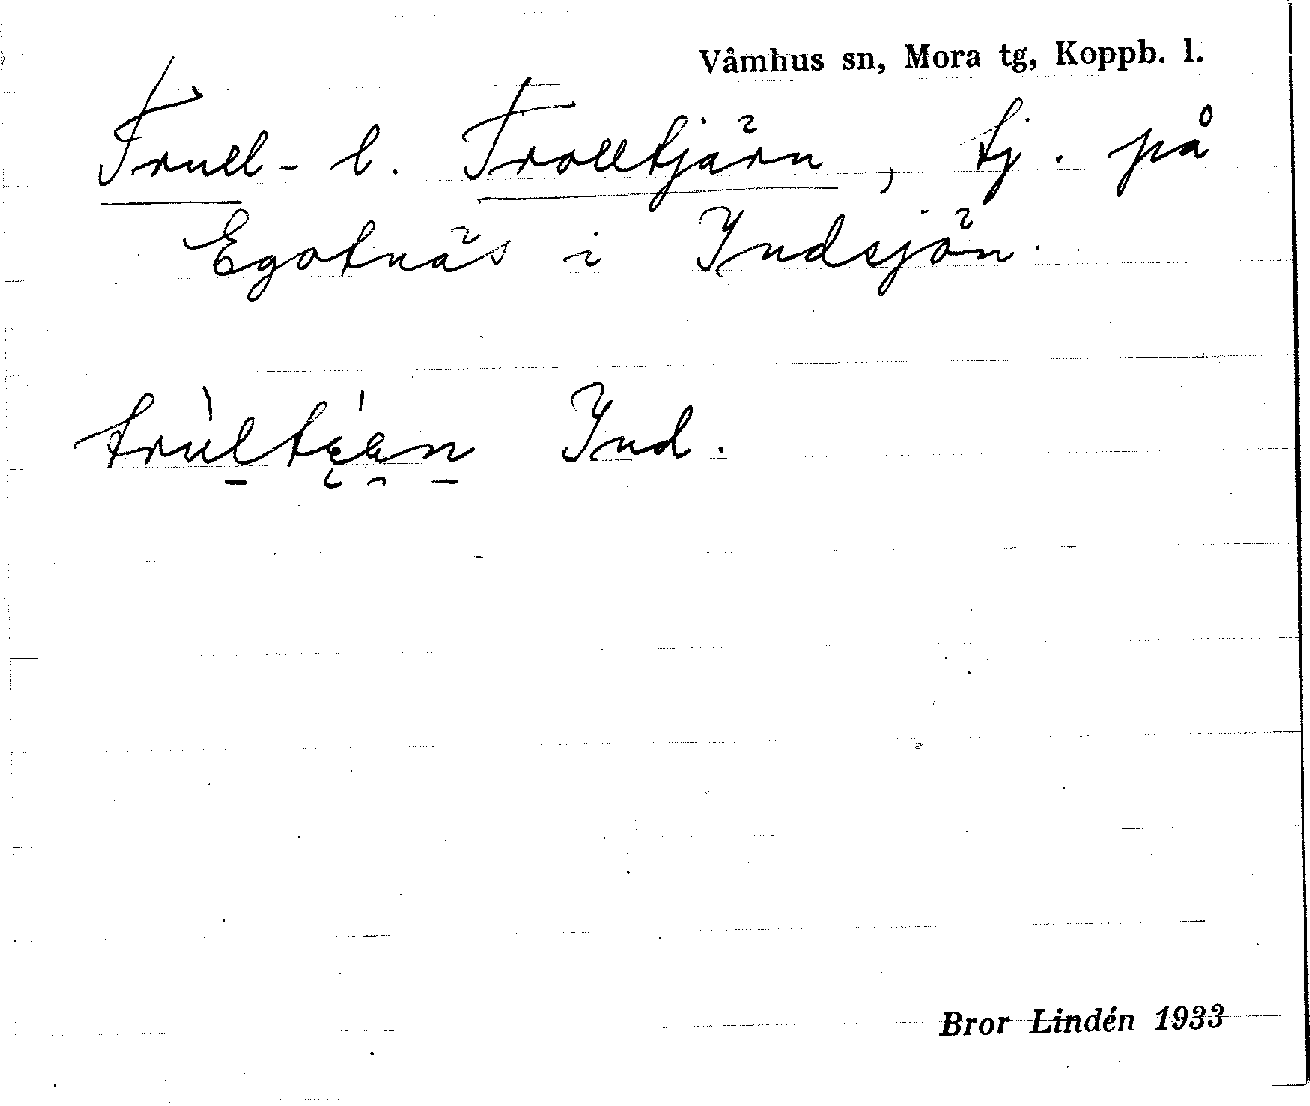 Våmhus sn, Mora tg, Koppb. l.
Trull- l. Trolltjärn, tj. på
Egotnäs i Indsjön.
Ind.
Bror Lindén 1933